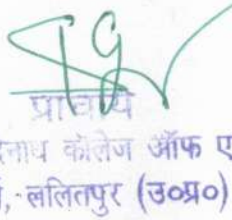 प्राचार्य
रनाथ कॉलेज ऑफ ए
, ललितपुर (उ०प्र०)